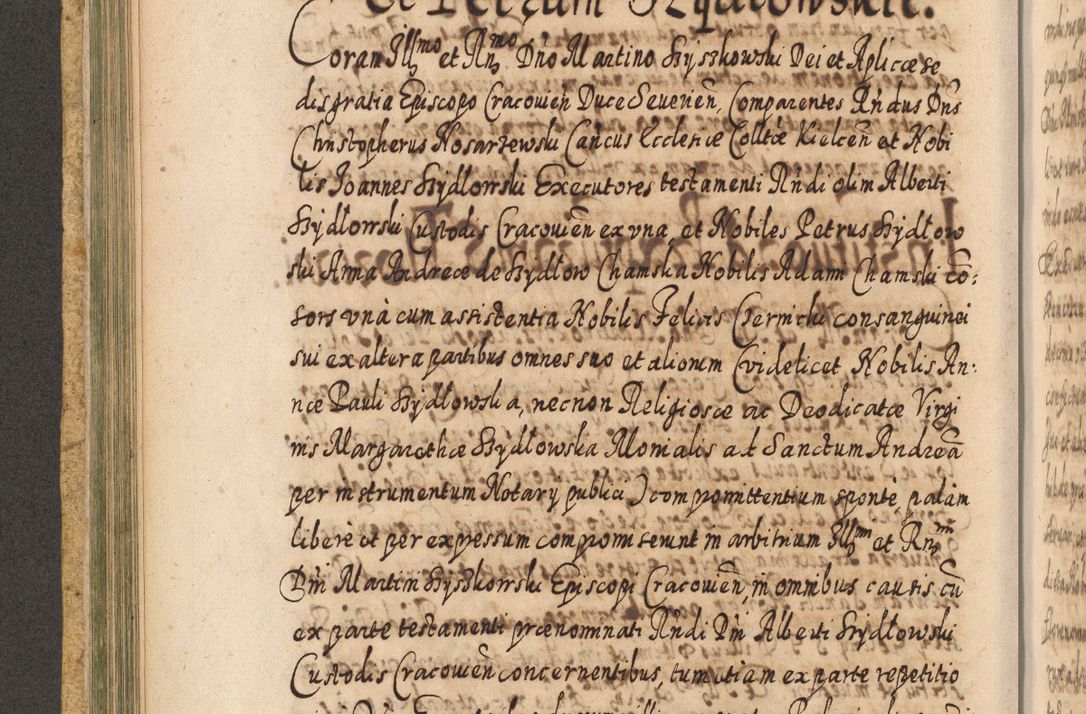 Et Petrum Szydłowskie.
Coram Illmo et Rn̄mo Dn̄o Martino Szyszkowski Dei et Aplicæ Se
dis gratia Episcopo Cracovien̄ Duce Severien̄, Comparentes Rn̄dus Dn̄s
Christopherus Kosarzewski Can̄cus Ecclesiæ Colltæ Kielcen̄ et Nobi
lis Joannes Szydlowski Executores testamenti Rn̄di olim Alberti
Szydłowski Custodis Cracovien̄ ex vna, et Nobiles Petrus Szydłow
ski Anna Andreæ de Szydłow Chamska Nobilis Adami Chamski cō:
sors vnà cum assistentia Nobilis Felicis Czermiński consanguinei
sui ex altera partibus omnes suo et aliorum (videlicet Nobilis An:
næ Pauli Szydłowska, necnon Religiosæ ac Deodicatæ Virgi
nis Margarethæ Szydłowska Monialis ad Sanctum Andreā
per instrumentum Notary publici) compromittentium sponte, palam
libere et per expressum compromiserunt in arbitrium Illmi et Rn̄mi
Dn̄i Martini Szyszkowski Episcopi Cracovien̄, in omnibus causis cū
ex parte testamenti prænominati Rn̄di Dn̄i Alberti Szydłowski
Custodis Cracovien̄ concernentibus, tum etiam ex parte repetitio